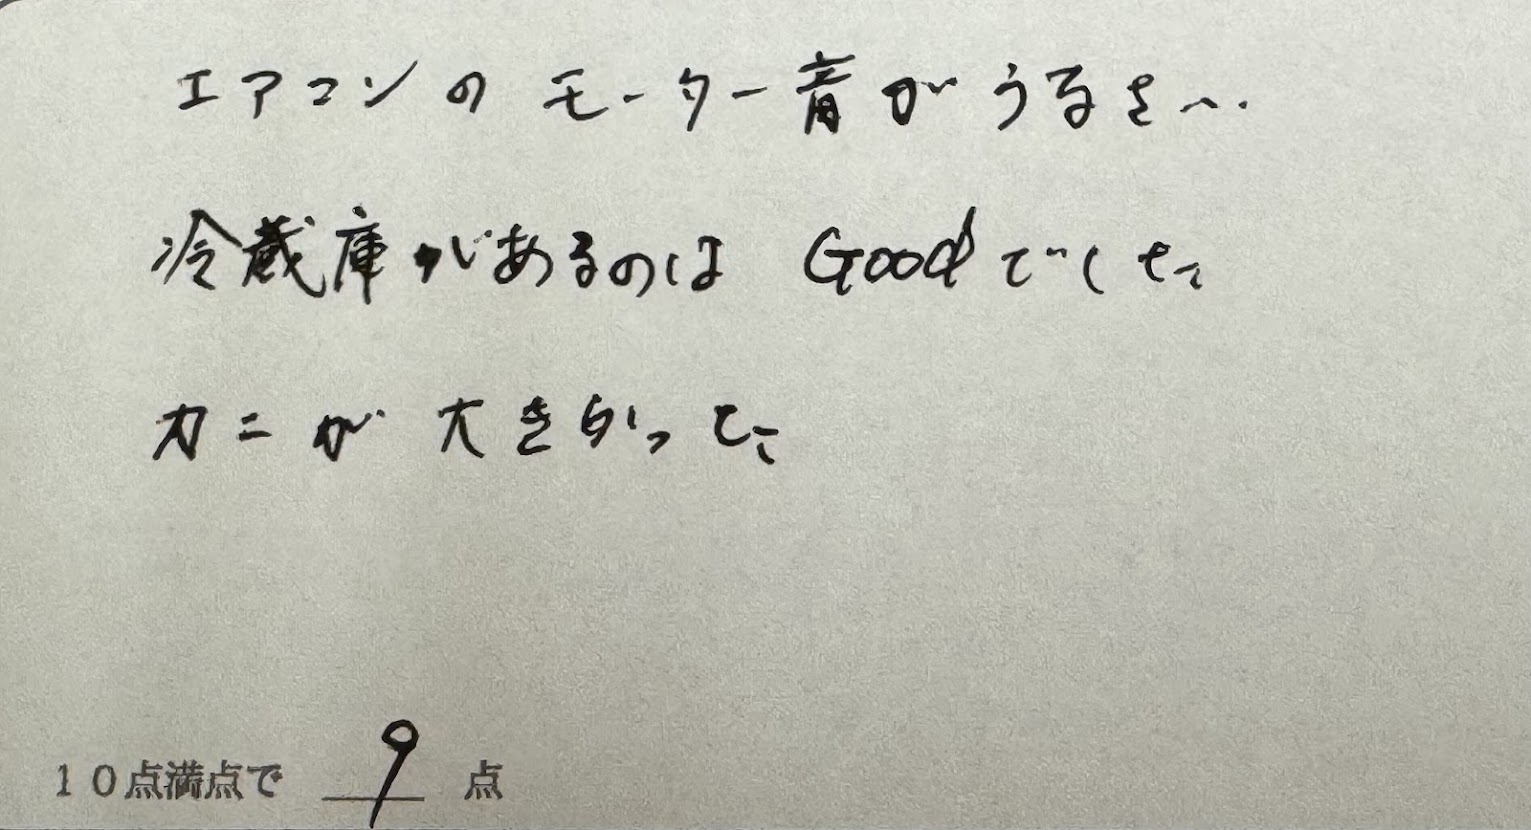 エアコンのモーター音がうるさい..
冷蔵庫があるのは Goodでした
カニが大きかった
10点満点で 9 点